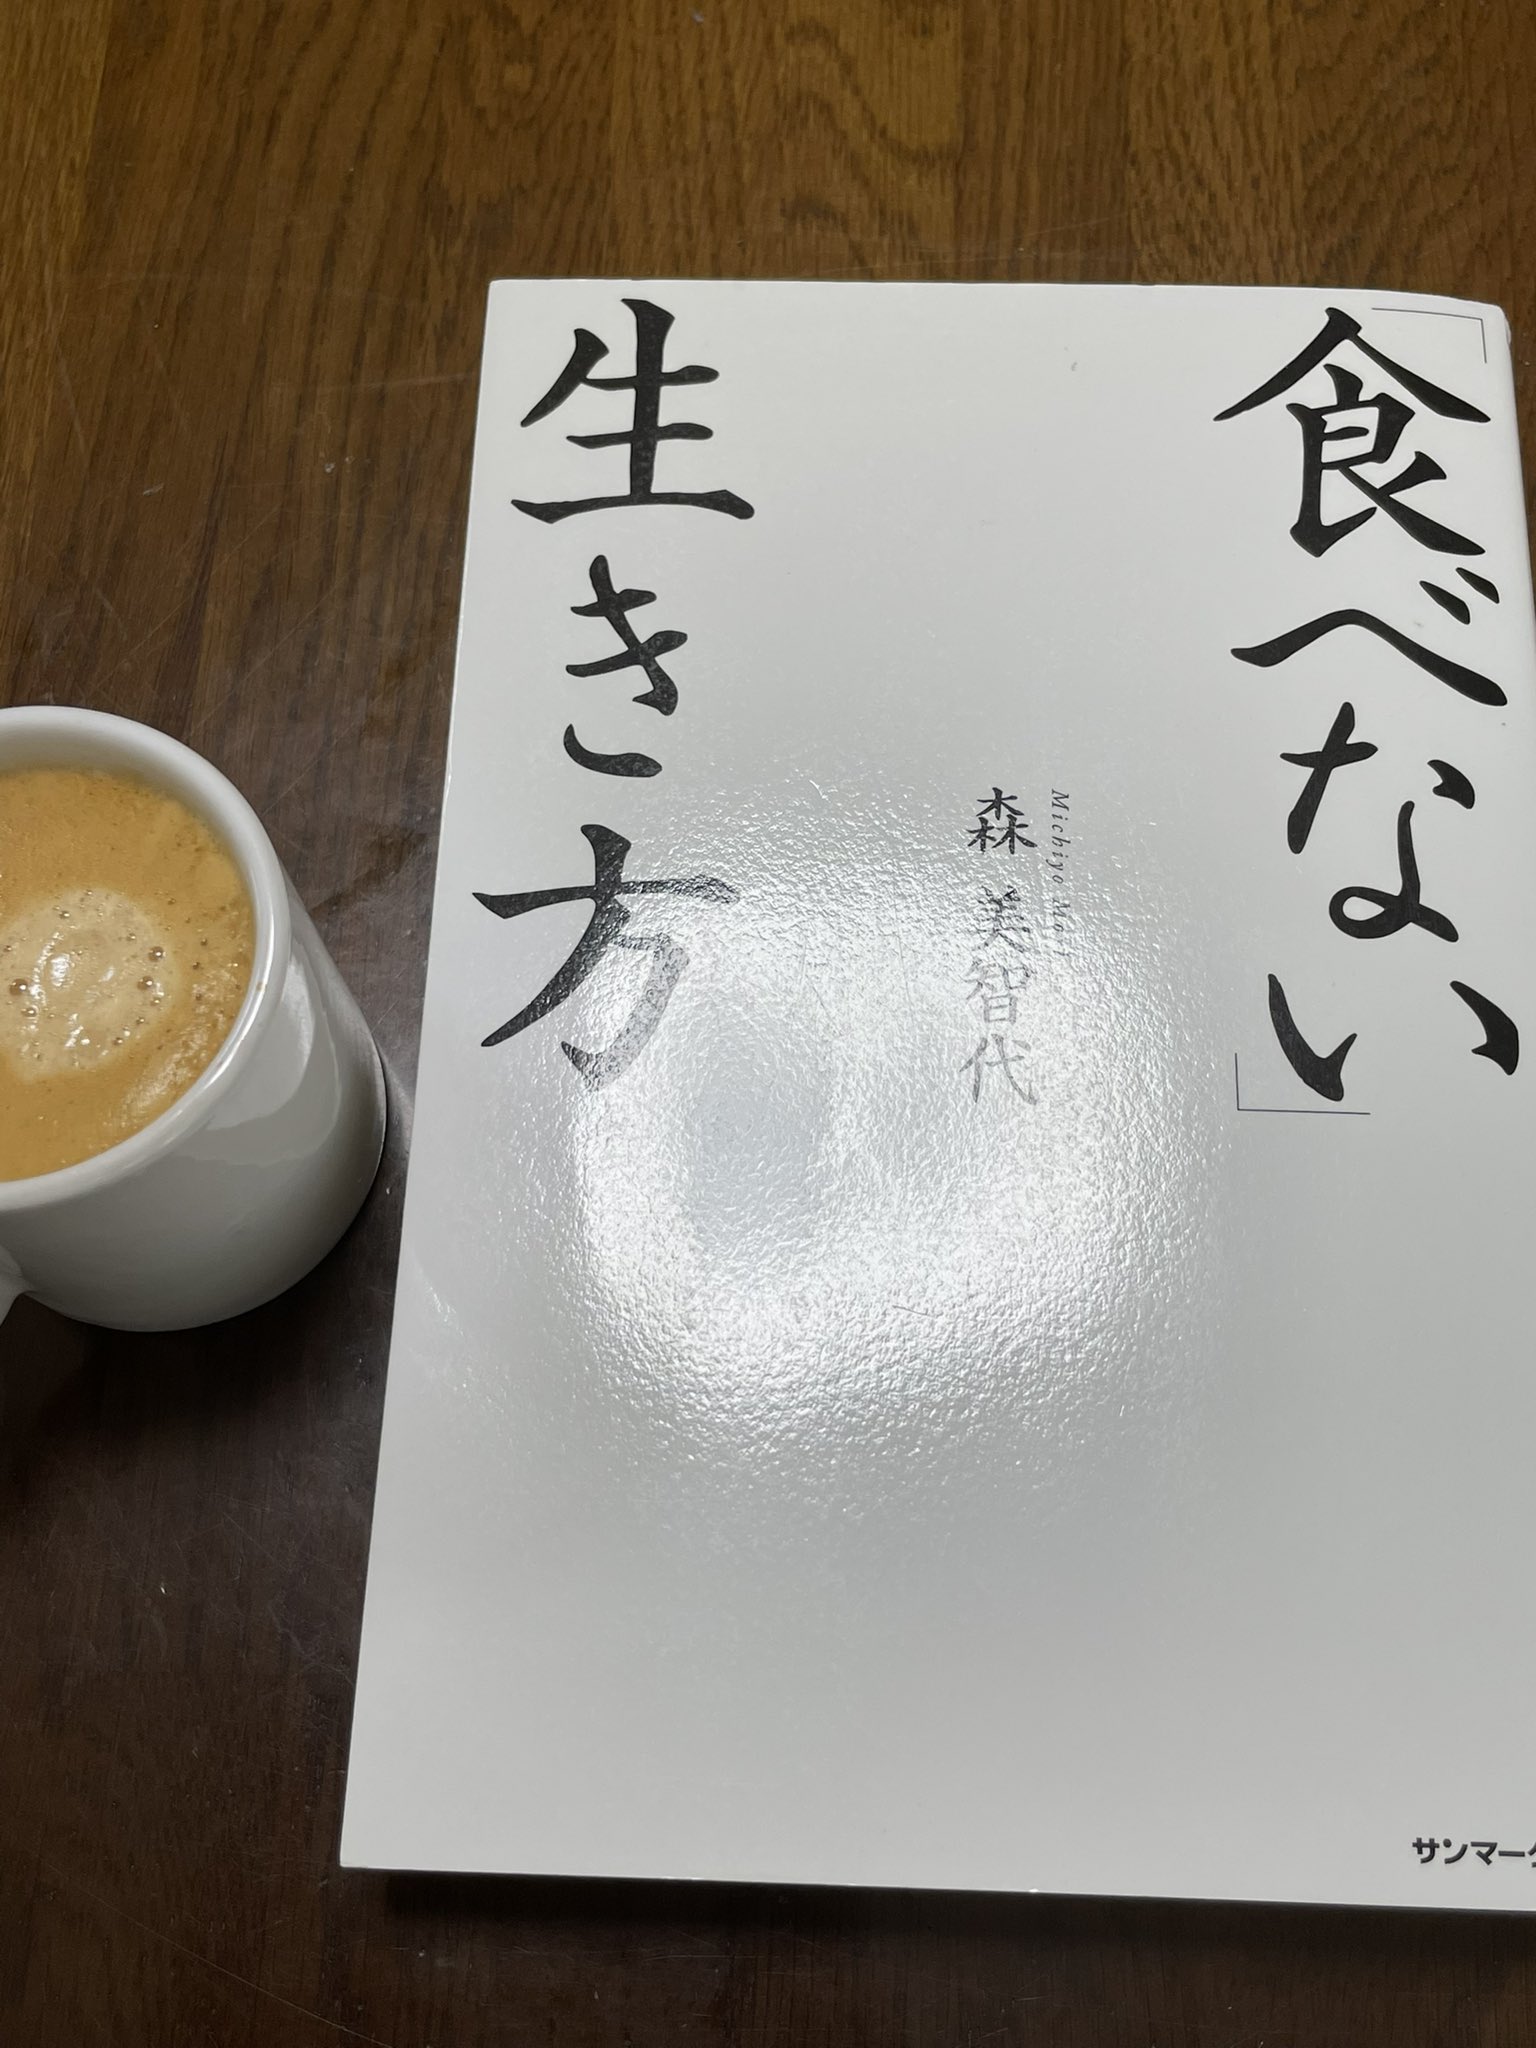 「食べない」
生き方
Michiyo Mori
森 美智代
サンマーク